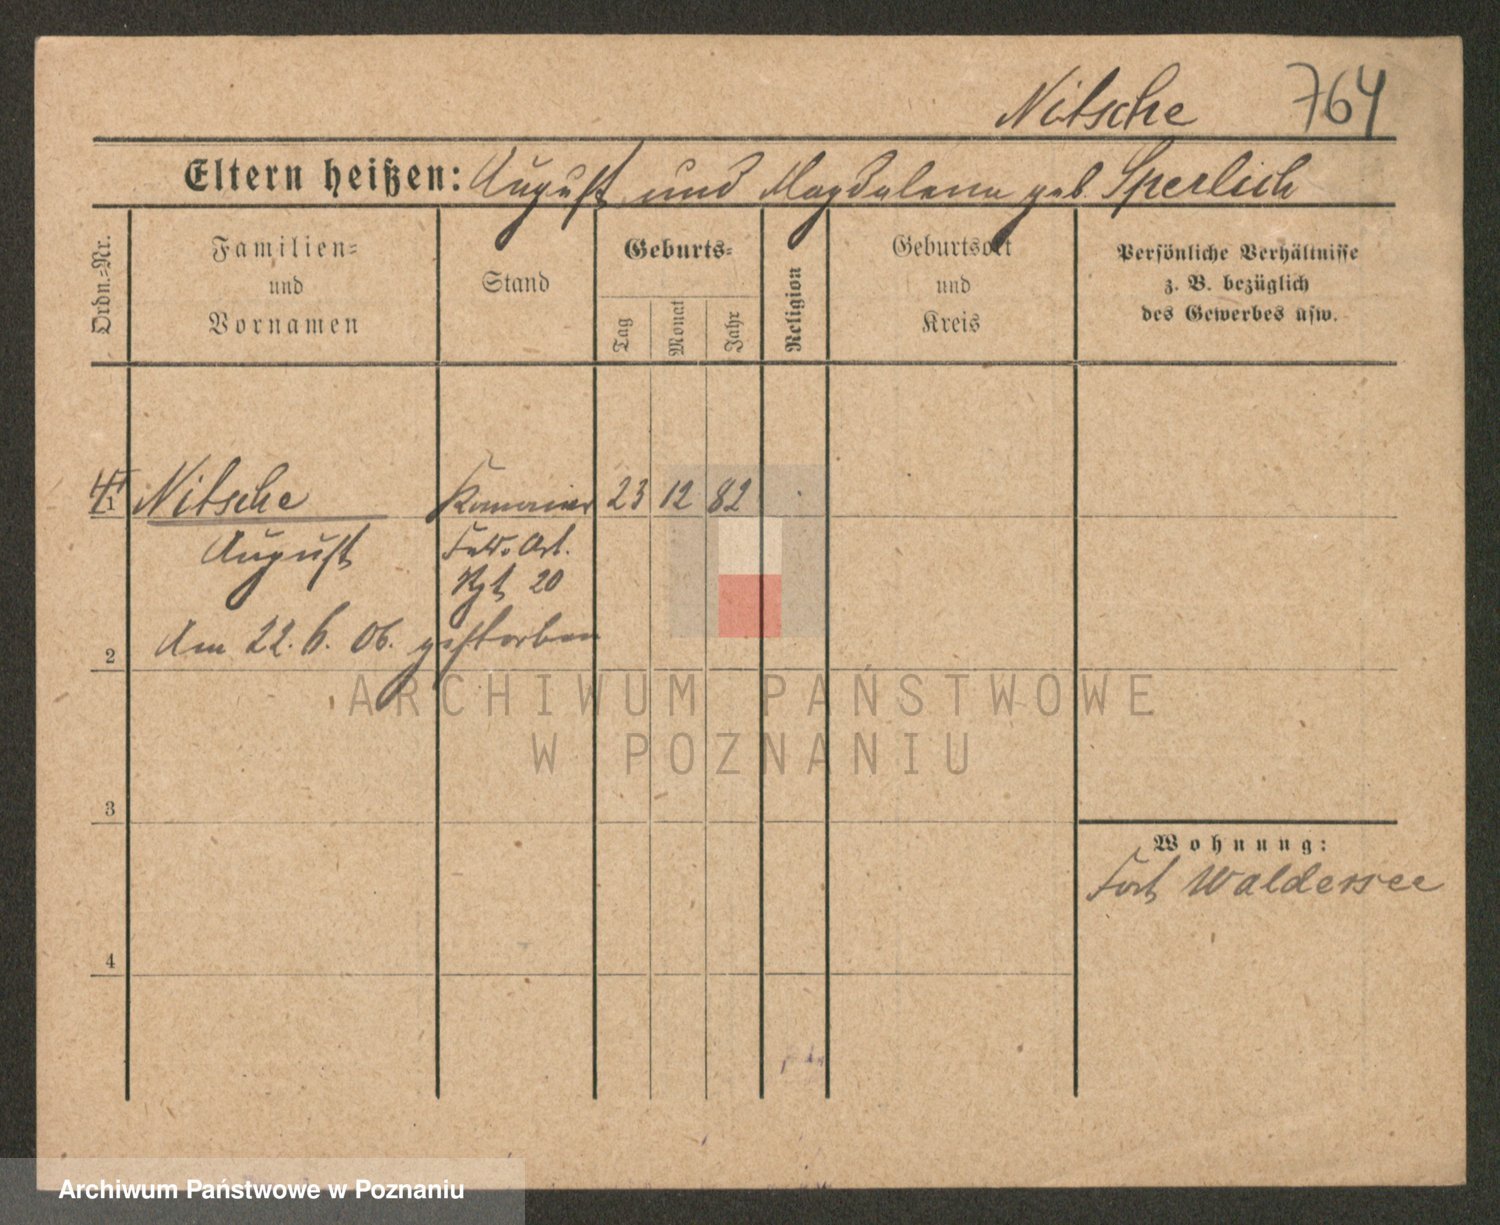 Nitsche 764
Eltern heißen: August und Magdalena geb. Sperlich
Ordn.-Nr.
Familien-
und
Vornamen
Stand
Geburts-
Tag
Monat
Jahr
Religion
Geburtsort
und
Kreis
Persönliche Verhältnisse
z. B. bezüglich
des Gewerbes usw.
1 Nitsche Kanonier 23 12 82
August Feld. Art.
Rgt 20
Am 22. 6. 06. gestorben
2
3
4
Wohnung:
Fort Waldersee
ARCHIWUM PAŃSTWOWE
W POZNANIU
Archiwum Państwowe w Poznaniu